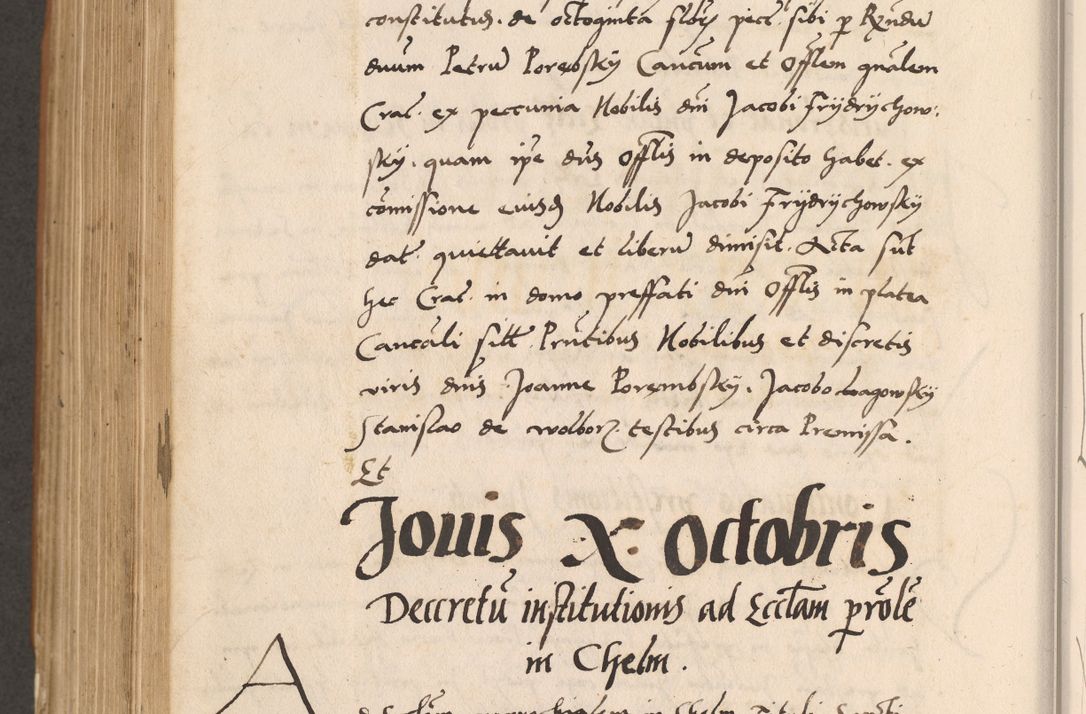 constitutus. de octoginta flor. pecc. sibi p Rndū
dnum Petrū Porembsky Cancūm et Offlem gnālem
Crac. ex peccunia Nobilis dni Jacobi Frydrychow.
sky. quam ipe dns Offlis in deposito habet. ex
cōmissione eiusd Nobilis Jacobi Frydrychowsky
dat. quiettavit et liberū dimisit. Acta sūt
hec Crac. in domo preffati dni Offlis in platea
Canōcali sitt. Pn̄tibus Nobilibus et discretis
viris dnis Joanne Porembsky. Jacobo
Stanislao de wolborz. testibus circa Premissa.
Et
Jouis X. Octobris
Deccretū institutionis ad Ecclam p̱rolē
in Chelm.
A
d Ecclam parrochialem in Chelm Tituli Sancti